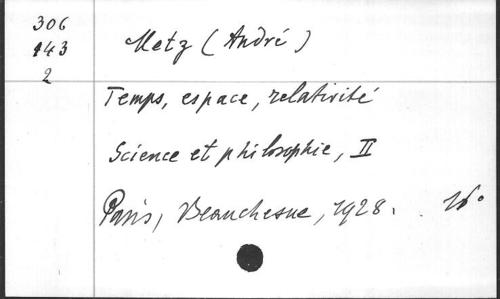 306
143
2
Metz (André)
Temps, espace, relativité
Science et philosophie, II
Paris, Beauchesne, 1928. 16°